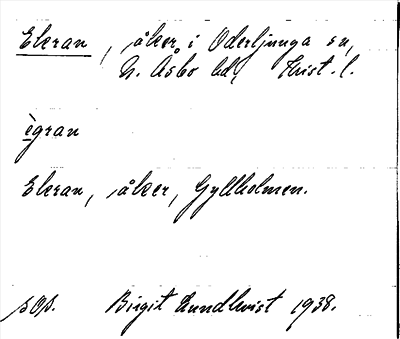 Ekran, åker i Oderljunga sn,
N. Åsbo hd, Krist. l.
ègran
Ekran, åker, Gyllholmen.
sOp. Birgit Lundkvist 1938.